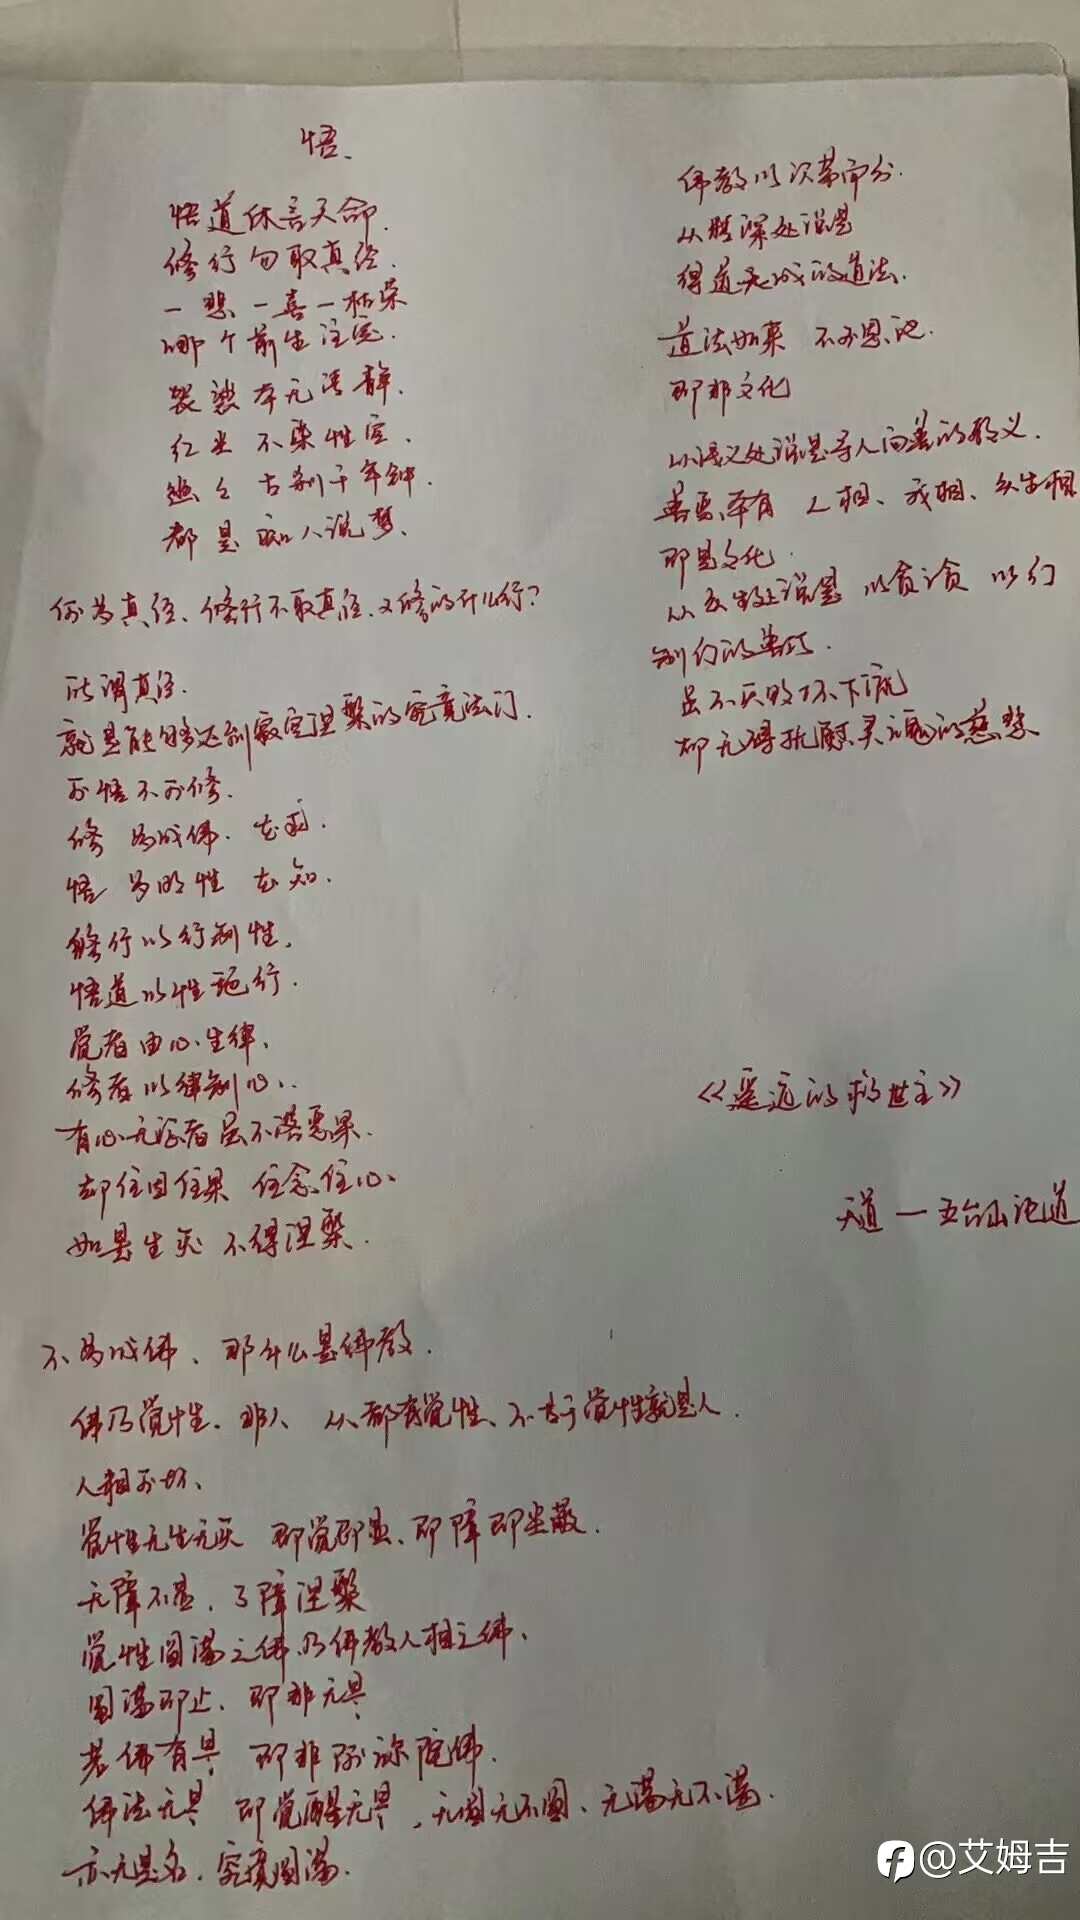 悟、
悟道休言天命.
修行勿取真经.
一悲一喜一枯荣
哪个前生注定.
袈裟本无清静.
红尘不染性空.
悠悠古刹千年钟.
都是痴人说梦.
何为真经、修行不取真经、又修的什么行?
所谓真经.
就是能够达到寂空涅槃的究竟法门.
可悟不可修.
修 为成佛. 在求.
悟 为明性 在知.
修行以行制性.
悟道以性施行.
觉者由心生律、
修者以律制心.
有心无 者虽不落恶果.
却住因住果 住念住心、
如是生灭 不得涅槃.
不为成佛、那什么是佛教.
佛乃觉性、非人 人都有觉性、不 于觉性就是人.
人相可坏、
觉性无生无灭 即觉即显、即障即尘蔽.
无障不显. 了障涅槃
觉性圆满之佛.乃佛教人相之佛、
圆满即止. 即非无量
若佛有量 即非阿弥陀佛.
佛法无量 即觉醒无量, 无圆无不圆、无满无不满.
亦无是名. 究竟圆满.
佛教以次第而分.
从精深处说是
得道天成的道法.
道法如来 不可思 .
即非文化
从浅义处说是导人向善的教义.
善恶本有 人相、我相、众生相
即是文化.
从众生处上说是 以贪治贪 以 
制 的善行.
虽不灭败坏下流
却无碍抚慰灵魂的慈悲
《遥远的救世主》
天道 — 五台山论道
@艾姆吉